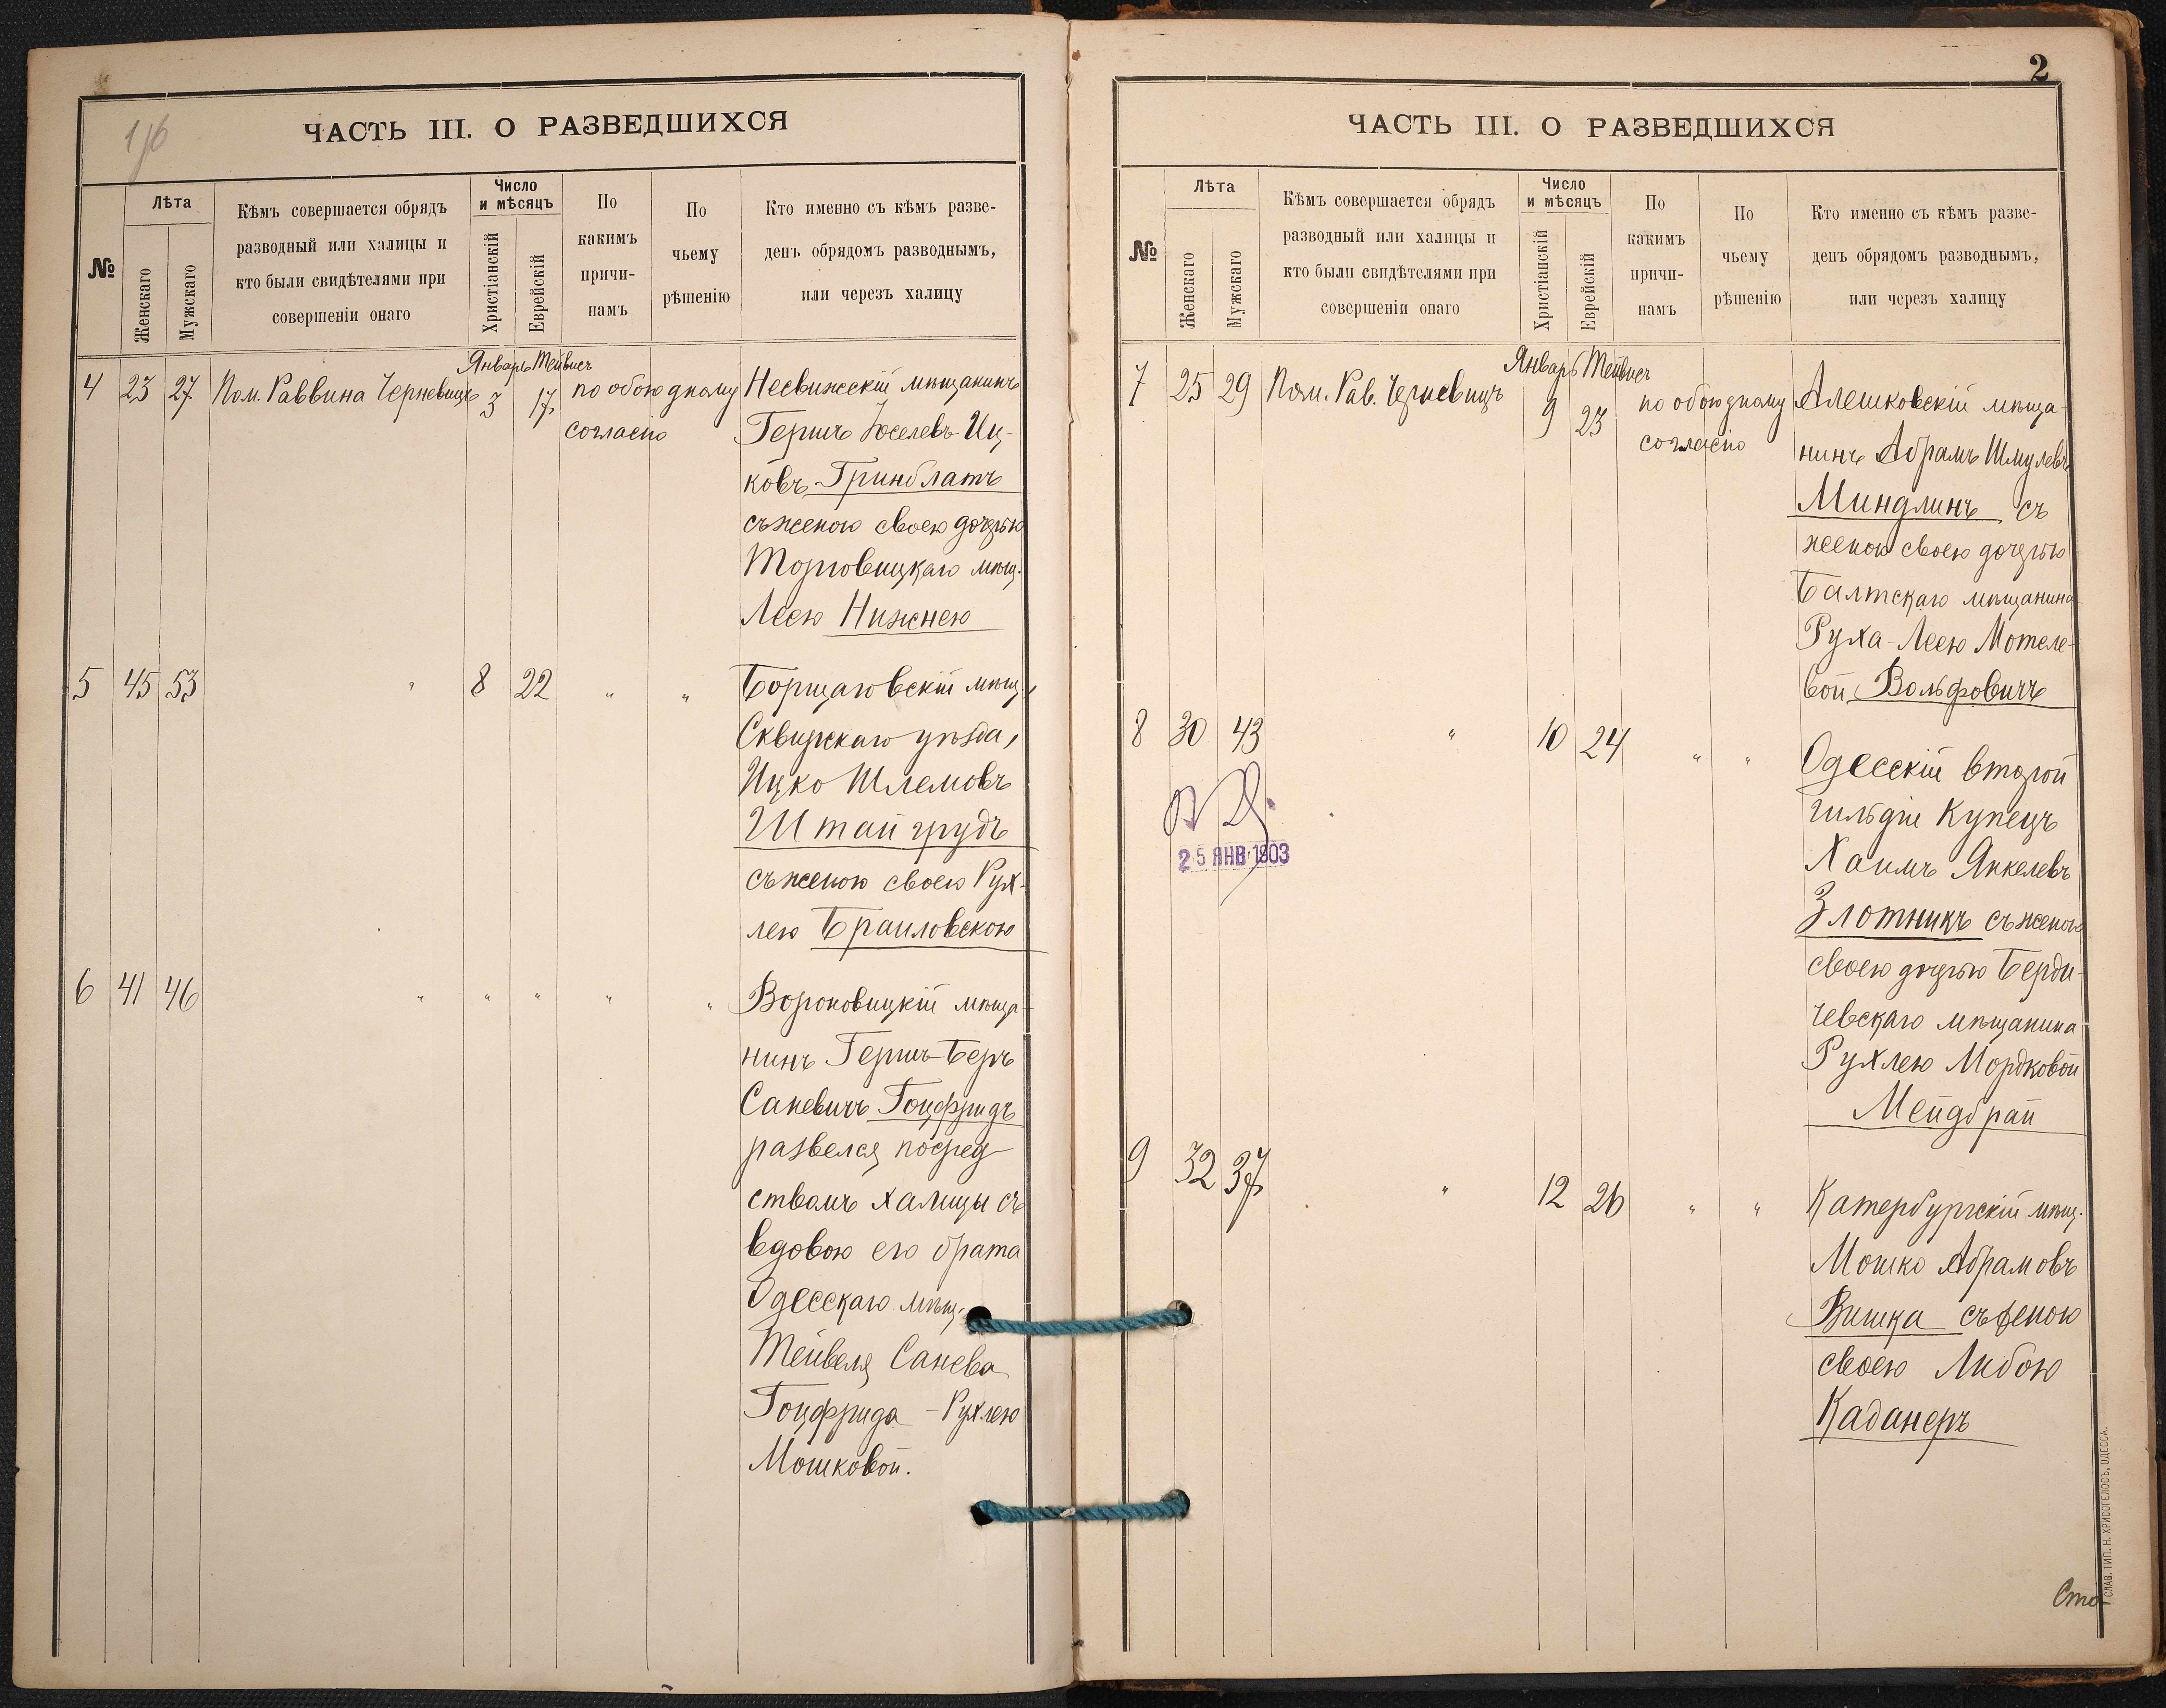 1/6
ЧАСТЬ III. О РАЗВЕДШИХСЯ
№
Лѣта
Женскаго
Мужскаго
Кѣмъ совершается обрядъ
разводный или халицы и
кто были свидѣтелями при
совершеніи онаго
Число
и мѣсяцъ
Христіанскій
Еврейскій
По
какимъ
причи-
намъ
По
чьему
рѣшенію
Кто именно съ кѣмъ разве-
денъ обрядомъ разводнымъ,
или черезъ халицу
Январь Тейвисъ
4 23 27 Пом. Раввина Черневицъ 3 17 по обоюдному
согласію
Несвижскій мѣщанинъ
Гершъ Іоселевъ-Иц-
ковъ Гринблатъ
съ женою своею дочерью
Торговицкаго мѣщ.
Леею Нижнею
5 45 53 " 8 22 " "
Борщаговскій мѣщ.,
Сквирскаго уѣзда,
Ицко Шлемовъ
Штайгрудъ
съ женою своею Рух-
лею Браиловскою
6 41 46 " " " " "
Вороновицкій мѣща-
нинъ Гершъ-Беръ
Саневичъ Гоцфридъ
развелся посред-
ствомъ халицы съ
вдовою его брата
Одесскаго мѣщ.
Тейвеля Санева
Гоцфрида - Рухлею
Мошковой.
2
ЧАСТЬ III. О РАЗВЕДШИХСЯ
№
Лѣта
Женскаго
Мужскаго
Кѣмъ совершается обрядъ
разводный или халицы и
кто были свидѣтелями при
совершеніи онаго
Число
и мѣсяцъ
Христіанскій
Еврейскій
По
какимъ
причи-
намъ
По
чьему
рѣшенію
Кто именно съ кѣмъ разве-
денъ обрядомъ разводнымъ,
или черезъ халицу
Январь Тейвисъ
7 25 29 Пом. Рав. Черневицъ 9 23 по обоюдному
согласію
Алешковскій мѣща-
нинъ Абрамъ Шмулевъ
Миндлинъ съ
женою своею дочерью
Балтскаго мѣщанина
Руха-Леею Мотеле-
вой Вольфовичъ
8 30 43 " 10 24 " "
25 ЯНВ 1903
Одесскій второй
гильдіи Купецъ
Хаимъ Янкелевъ
Злотникъ съ женою
своею дочерью Берди-
чевскаго мѣщанина
Рухлею Мордковой
Мейдбрай
9 32 37 " 12 26 " "
Катербургскій мѣщ.
Мошко Абрамовъ
Вишка съ женою
своею Либою
Каданеръ
Сто
СЛАВ. ТИП. Н. ХРИСОГЕЛОСЪ, ОДЕССА.